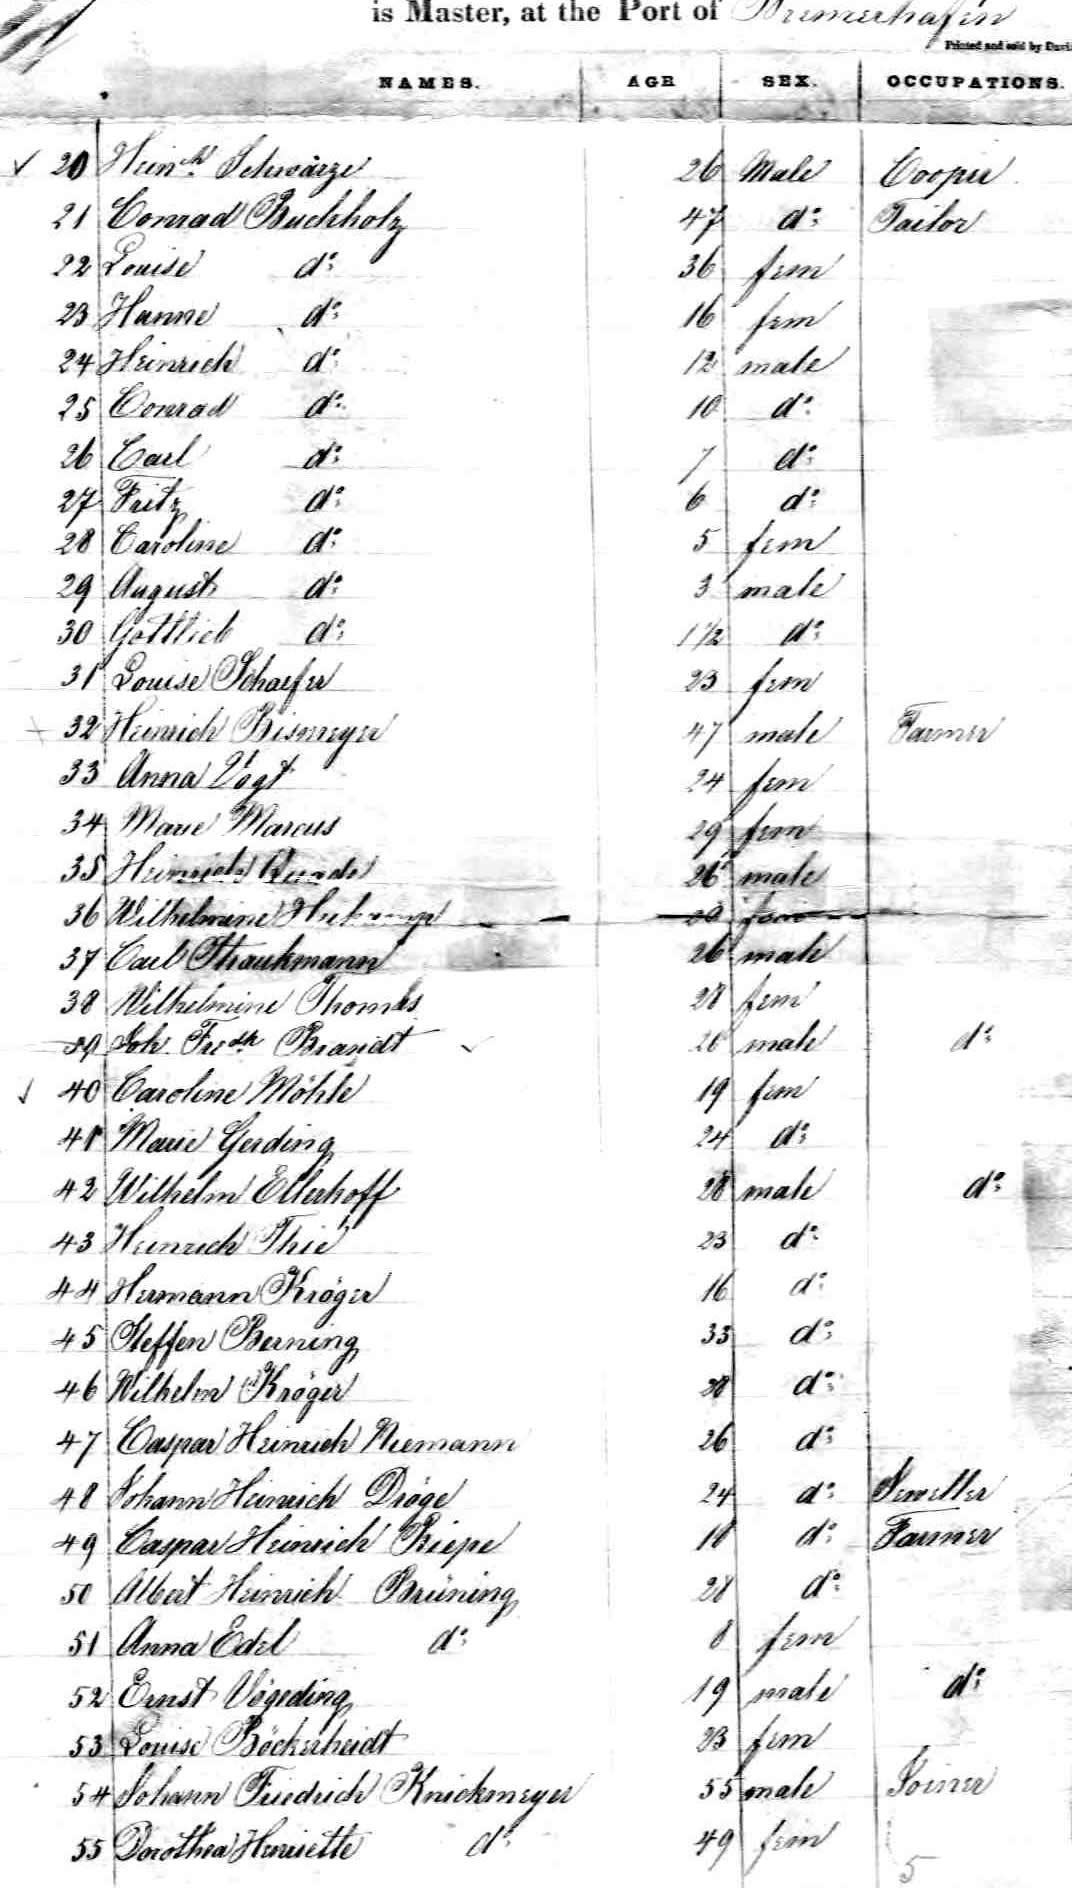 is Master, at the Port of Bremerhafen
Printed and sold by Davi
NAMES. AGE SEX. OCCUPATIONS.
20 Heinrh. Schwärze 26 Male Cooper
21 Conrad Buchholz 47 do: Tailor
22 Louise do: 36 fem
23 Hanne do: 16 fem
24 Heinrich do: 12 male
25 Conrad do: 10 do:
26 Carl do: 7 do:
27 Fritz do: 6 do:
28 Caroline do: 5 fem
29 August do: 3 male
30 Gottlieb do: 1 1/2 do:
31 Louise Schaefer 23 fem
32 Heinrich Bismeyer 47 male Farmer
33 Anna Vogt 24 fem
34 Marie Marcus 29 fem
35 Heinrich 26 male
36 Wilhelmine fem
37 Carl Straukmann 26 male
38 Wilhelmine Thomas 28 fem
39 Joh. Fredk Brandt 26 male do:
40 Caroline Möhle 19 fem
41 Marie Gerding 24 do:
42 Wilhelm Ellerhoff 28 male do:
43 Heinrich Thie 23 do:
44 Hermann Kröger 16 do:
45 Steffen Berning 33 do:
46 Wilhelm Kröger do:
47 Caspar Heinrich Niemann 26 do:
48 Johann Heinrich Dröge 24 do: Jeweller
49 Caspar Heinrich Biepe 18 do: Farmer
50 Albert Heinrich Brüning 28 do:
51 Anna Edel do: 8 fem
52 Ernst Vögeding 19 male do:
53 Louise Böckerheidt 23 fem
54 Johann Friedrich Knickmeyer 55 male Joiner
55 Dorothea Henriette do: 49 fem
5